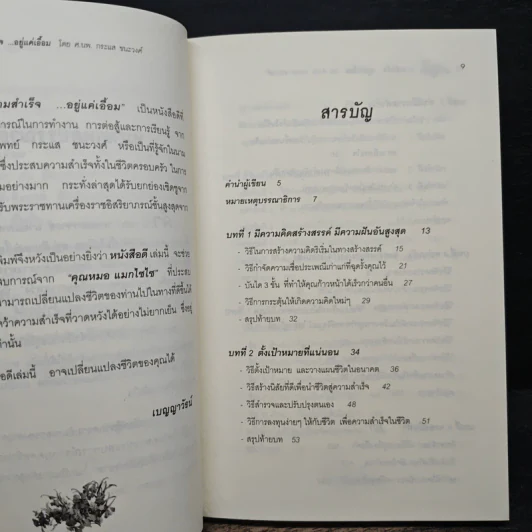 ...อยู่แค่เอื้อม โดย ศ.นพ. กระแส ชนะวงศ์
มสำเร็จ ...อยู่แค่เอื้อม" เป็นหนังสือดีที่
ารณ์ในการทำงาน การต่อสู้และการเรียนรู้ จาก
พทย์ กระแส ชนะวงศ์ หรือเป็นที่รู้จักในนาม
ซึ่งประสบความสำเร็จทั้งในชีวิตครอบครัว ในการ
มอย่างมาก กระทั่งล่าสุดได้รับยกย่องเชิดชูจาก
รับพระราชทานเครื่องราชอิสริยาภรณ์ชั้นสูงสุดจาก
พิมพ์จึงหวังเป็นอย่างยิ่งว่า หนังสือดี เล่มนี้ จะช่วย
บการณ์จาก "คุณหมอ แมกไซไซ" ที่ประสบ
ามารถเปลี่ยนแปลงชีวิตของท่านไปในทางที่ดีขึ้นได้
คว้าความสำเร็จที่วาดหวังได้อย่างไม่ยากเย็น ซึ่งอยู่
ท่านั้น
อดีเล่มนี้ อาจเปลี่ยนแปลงชีวิตของคุณได้
เบญญาวัธน์
9
สารบัญ
คำนำผู้เขียน 5
หมายเหตุบรรณาธิการ 7
บทที่ 1 มีความคิดสร้างสรรค์ มีความฝันอันสูงสุด 13
- วิธีในการสร้างความคิดริเริ่มในทางสร้างสรรค์ 15
- วิธีกำจัดความเชื่อประเพณีเก่าแก่ที่ฉุดรั้งคุณไว้ 21
- บันได 3 ขั้น ที่ทำให้คุณก้าวหน้าได้เร็วกว่าคนอื่น 27
- วิธีการกระตุ้นให้เกิดความคิดใหม่ๆ 29
- สรุปท้ายบท 32
บทที่ 2 ตั้งเป้าหมายที่แน่นอน 34
- วิธีตั้งเป้าหมาย และวางแผนชีวิตในอนาคต 36
- วิธีสร้างนิสัยที่ดีเพื่อนำชีวิตสู่ความสำเร็จ 42
- วิธีสำรวจและปรับปรุงตนเอง 48
- วิธีการลงทุนง่ายๆ ให้กับชีวิต เพื่อความสำเร็จในชีวิต 51
- สรุปท้ายบท 53